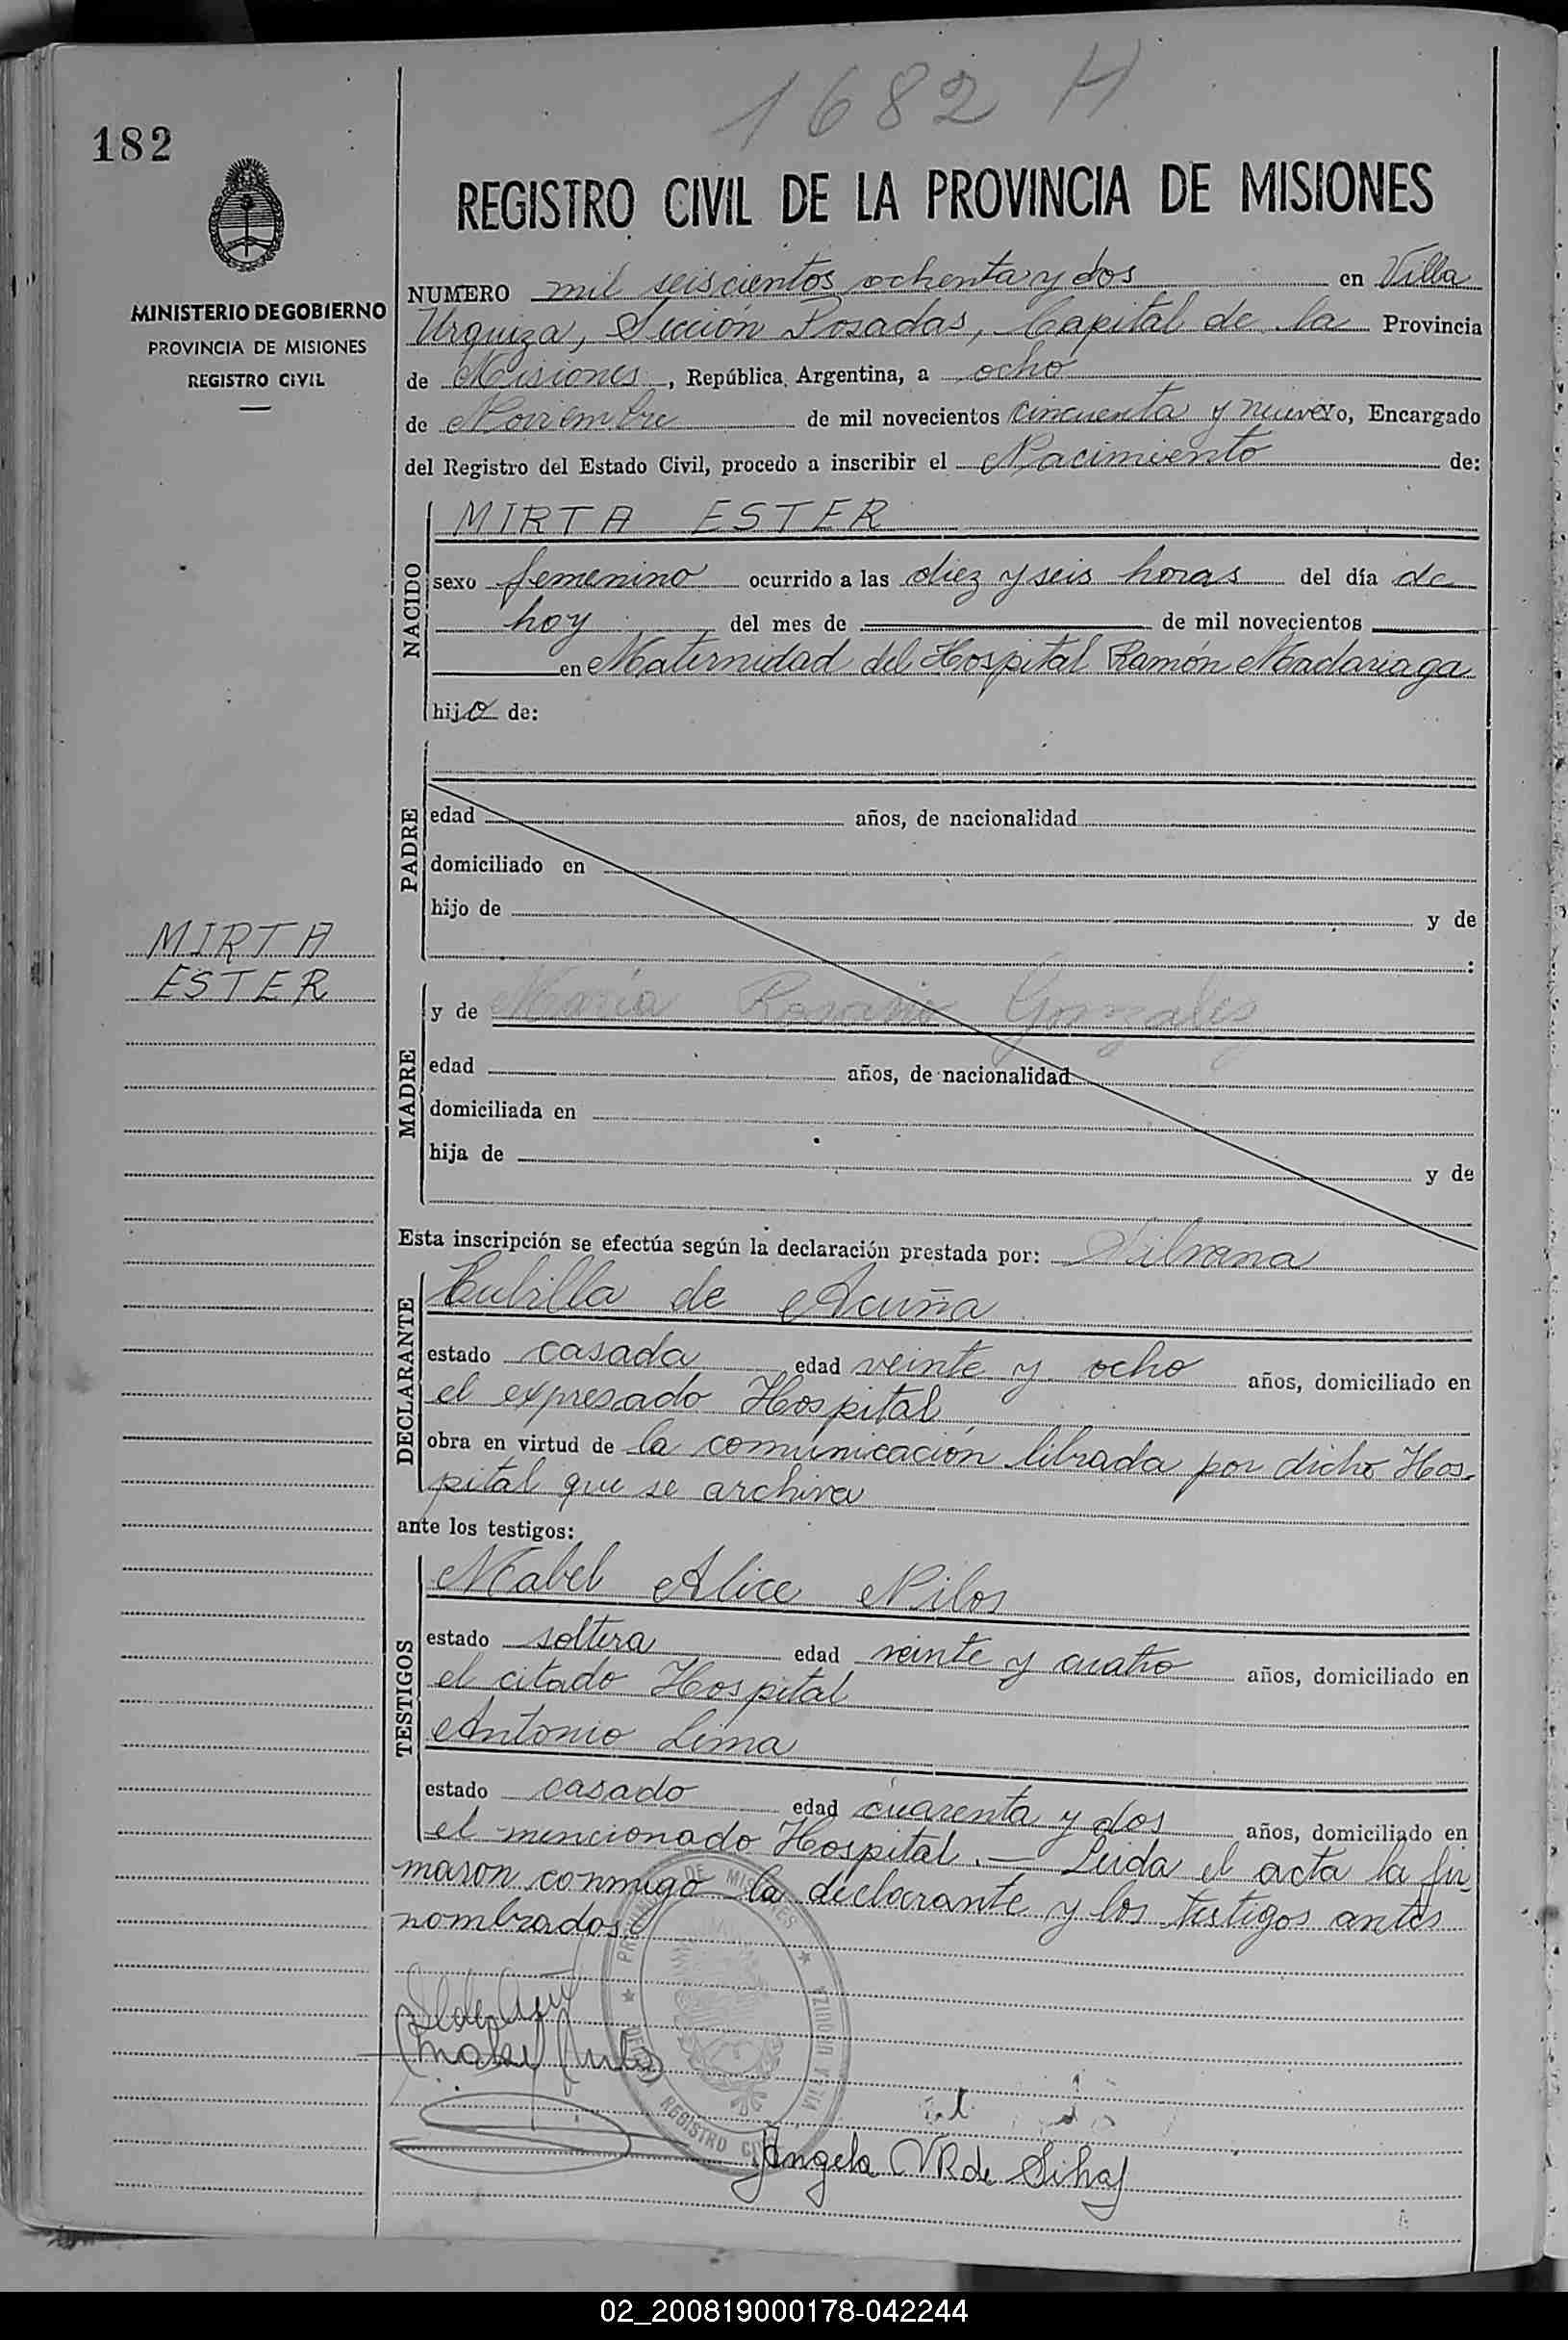 1682 H
182
REGISTRO CIVIL DE LA PROVINCIA DE MISIONES
MINISTERIO DE GOBIERNO
PROVINCIA DE MISIONES
REGISTRO CIVIL
NUMERO mil seiscientos ochenta y dos en Villa
Urquiza, Sección Posadas, Capital de la Provincia
de Misiones, República Argentina, a ocho
de Noviembre de mil novecientos cincuenta y nueve yo, Encargado
del Registro del Estado Civil, procedo a inscribir el Nacimiento de:
NACIDO
MIRTA ESTER
sexo femenino ocurrido a las diez y seis horas del día de
hoy del mes de de mil novecientos
en Maternidad del Hospital Ramón Madariaga
hijo de:
PADRE
edad años, de nacionalidad
domiciliado en
hijo de y de
:
MIRTA
ESTER
MADRE
y de María Rosario Gonzalez
edad años, de nacionalidad
domiciliada en
hija de y de
Esta inscripción se efectúa según la declaración prestada por: Silvana
DECLARANTE
Cubilla de Acuña
estado casada edad veinte y ocho años, domiciliado en
el expresado Hospital
obra en virtud de la comunicación librada por dicho Hos-
pital que se archiva
ante los testigos:
TESTIGOS
Mabel Alice Nilos
estado soltera edad veinte y cuatro años, domiciliado en
el citado Hospital
Antonio Lima
estado casado edad cuarenta y dos años, domiciliado en
el mencionado Hospital.— Leida el acta la fir-
maron conmigo la declarante y los testigos antes
nombrados.
PROVINCIA DE MISIONES
REGISTRO CIVIL
VILLA URQUIZA
Angela VR de Silva
02_200819000178-042244